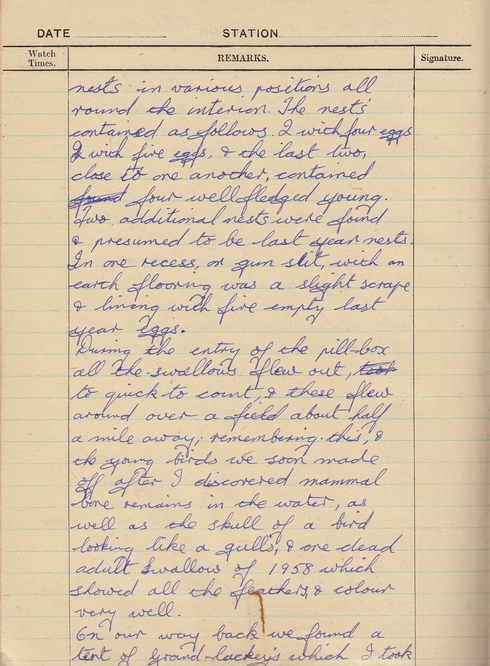 DATE STATION
Watch Times. REMARKS. Signature.
nests in various positions all
round the interior. The nests
contained as follows. 2 with four eggs
2 with five eggs, & the last two,
close to one another, contained
found four well fledged young.
Two additional nests were found
& presumed to be last year nests.
In one recess, or gun slit, with an
earth flooring was a slight scrape
& lining with five empty last
year eggs.
During the entry of the pill-box
all the swallows flew out, took
to quick to count, & these flew
around over a field about half
a mile away, remembering this, &
the young birds we soon made
off after I discovered mammal
bone remains in the water, as
well as the skull of a bird
looking like a gulls, & one dead
adult Swallow of 1958 which
showed all the feathers, & colour
very well.
On our way back we found a
tent of Grand-lackeys which I took